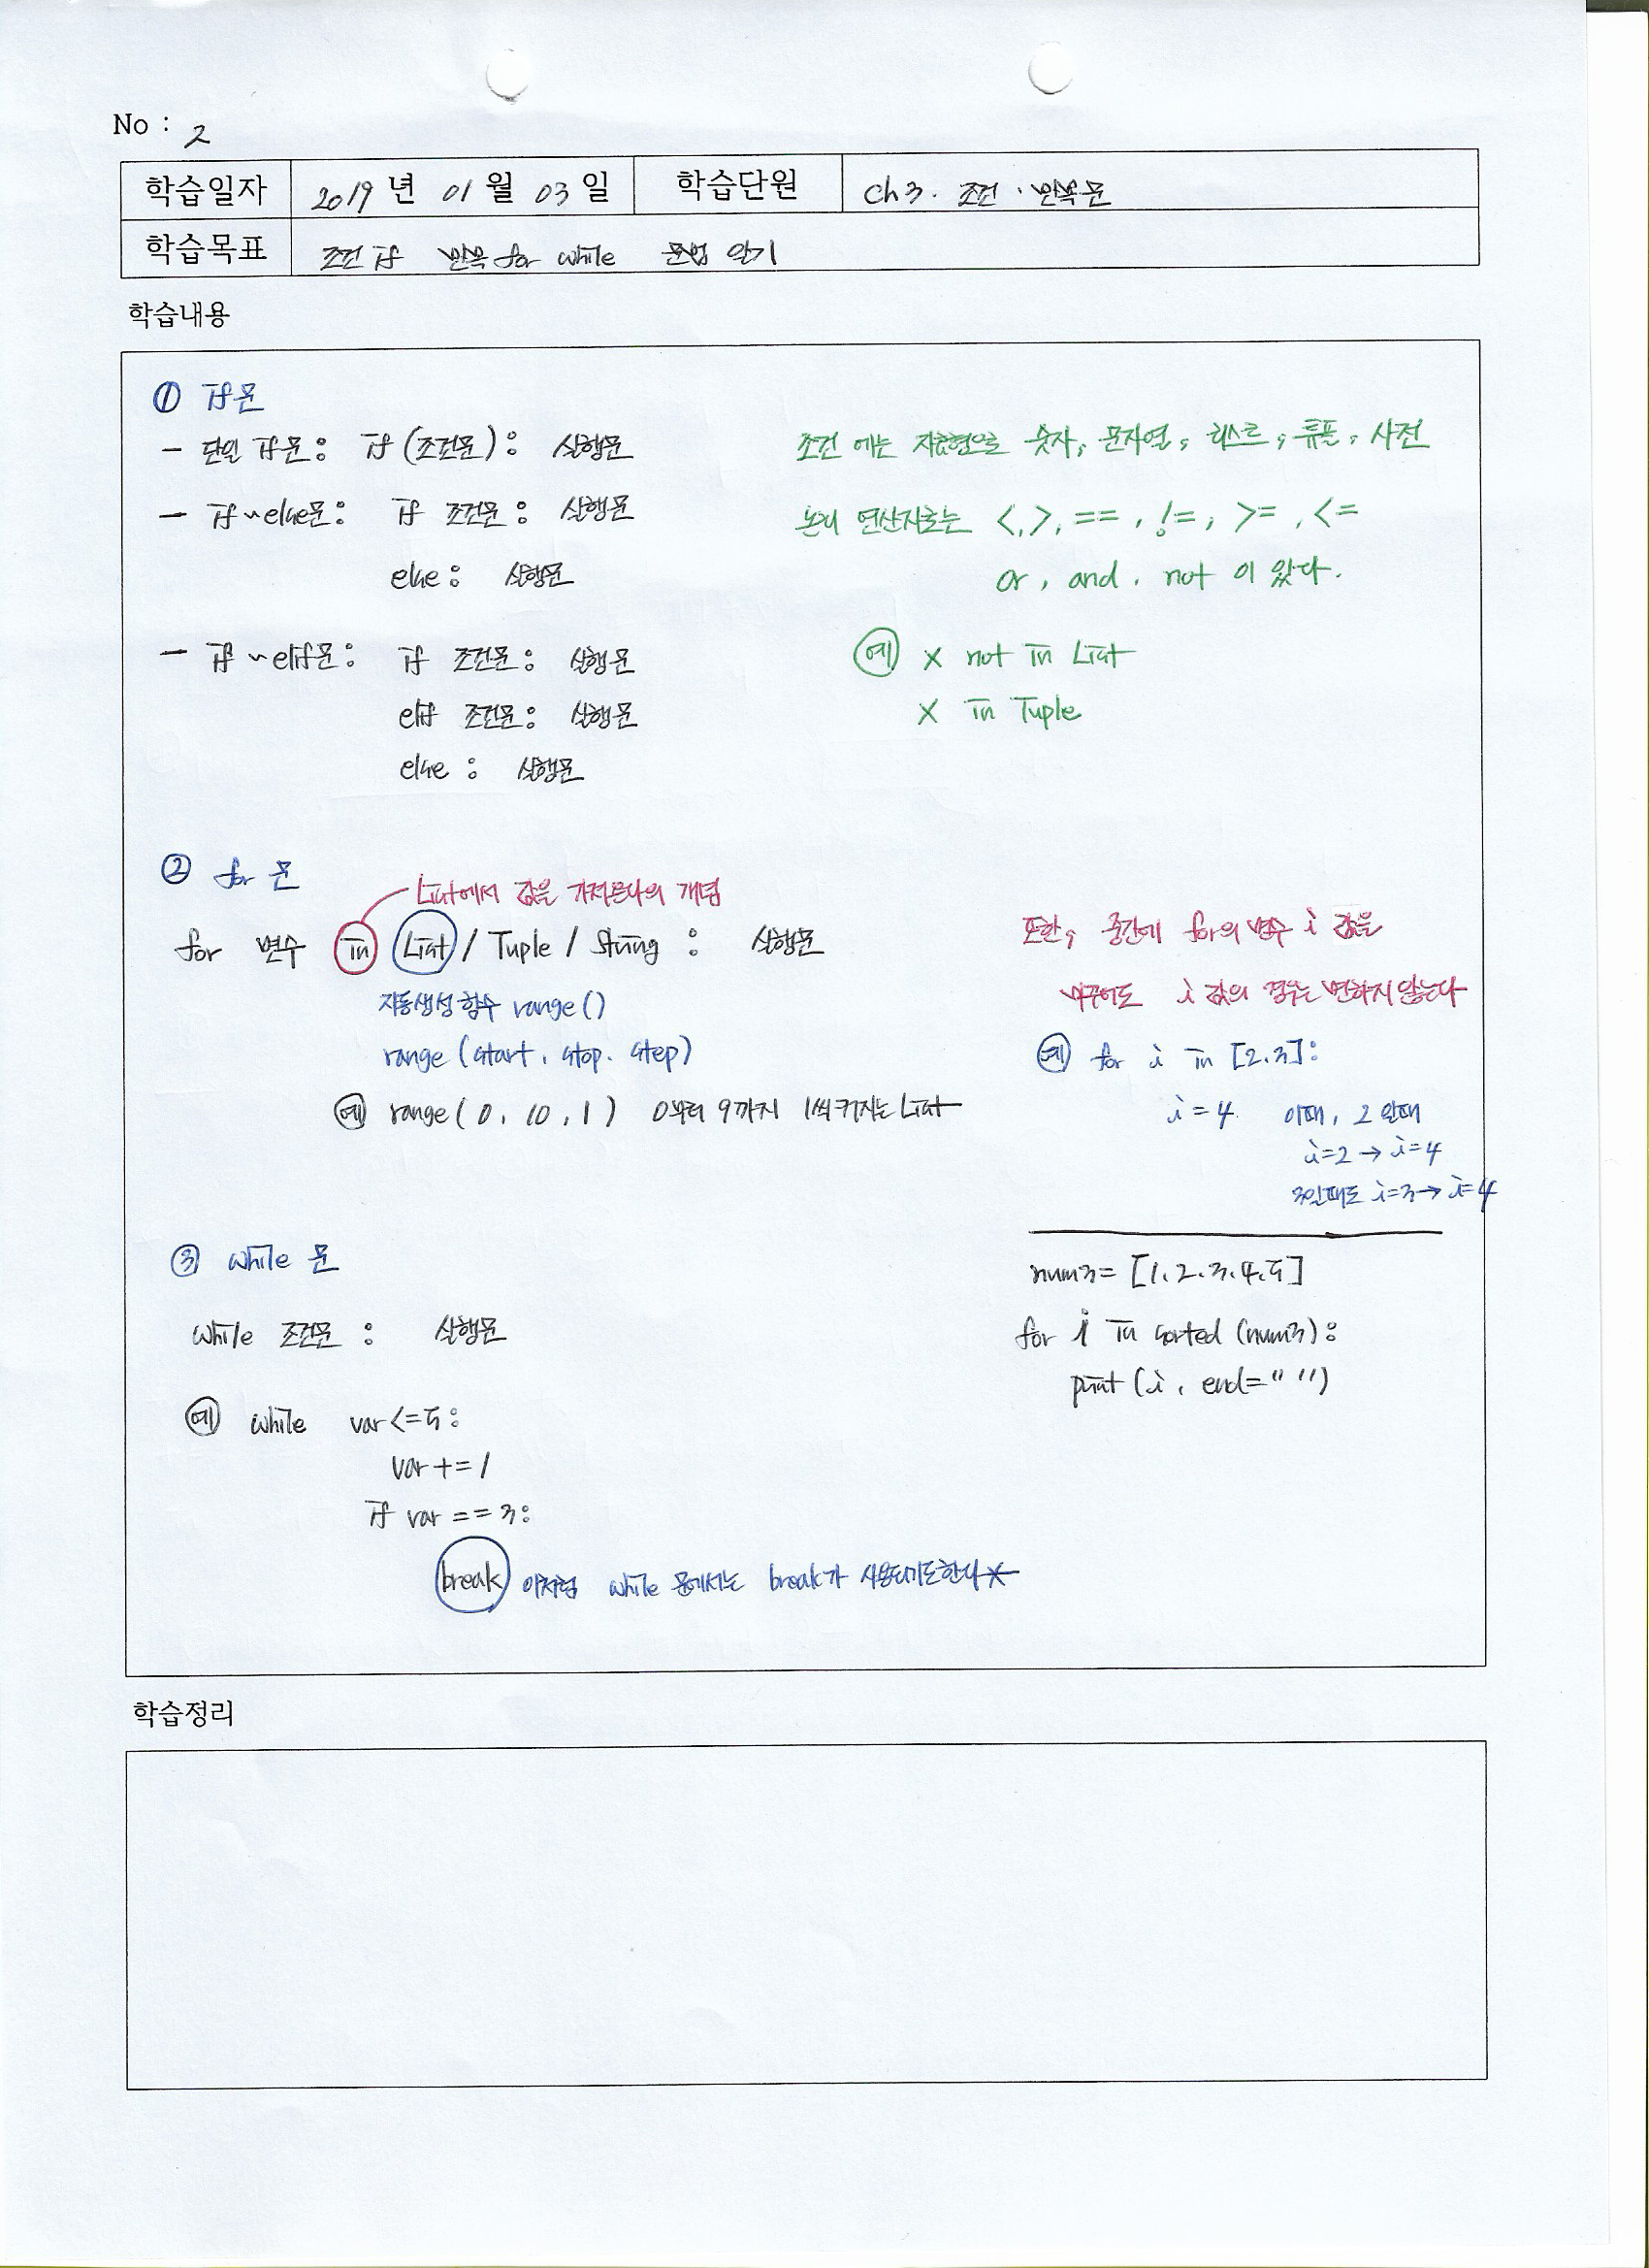 No : 2
학습일자 2019 년 01 월 03 일 학습단원 ch 3. 조건 · 반복문
학습목표 조건 if 반복 for while 문법 알기
학습내용
① if문
- 단일 if문 : if (조건문) : 실행문
- if~else문 : if 조건문 : 실행문
else : 실행문
- if ~elif문 : if 조건문 : 실행문
elif 조건문 : 실행문
else : 실행문
조건 에는 자료형으로 숫자, 문자열, 리스트, 튜플, 사전
논리 연산자로는 <, >, ==, !=, >=, <=
or, and, not 이 있다.
예 x not in List
x in Tuple
② for 문
List에서 값을 가져온다의 개념
for 변수 in List / Tuple / String : 실행문
자동생성 함수 range()
range (start, stop, step)
예 range( 0, 10, 1 ) 0부터 9까지 1씩 커지는 List
또한, 중간에 for의 변수 i 값을
바꾸어도 i 값의 경우는 변하지 않는다
예 for i in [2,3]:
i = 4 이때, 2 일때
i=2 → i=4
3일때도 i=3 → i=4
num3= [1,2,3,4,5]
for i in sorted (num3):
print (i, end=" ")
③ while 문
while 조건문 : 실행문
예 while var <= 5 :
var += 1
if var == 3:
break 이처럼 while 문에서는 break가 사용되기도한다*
학습정리